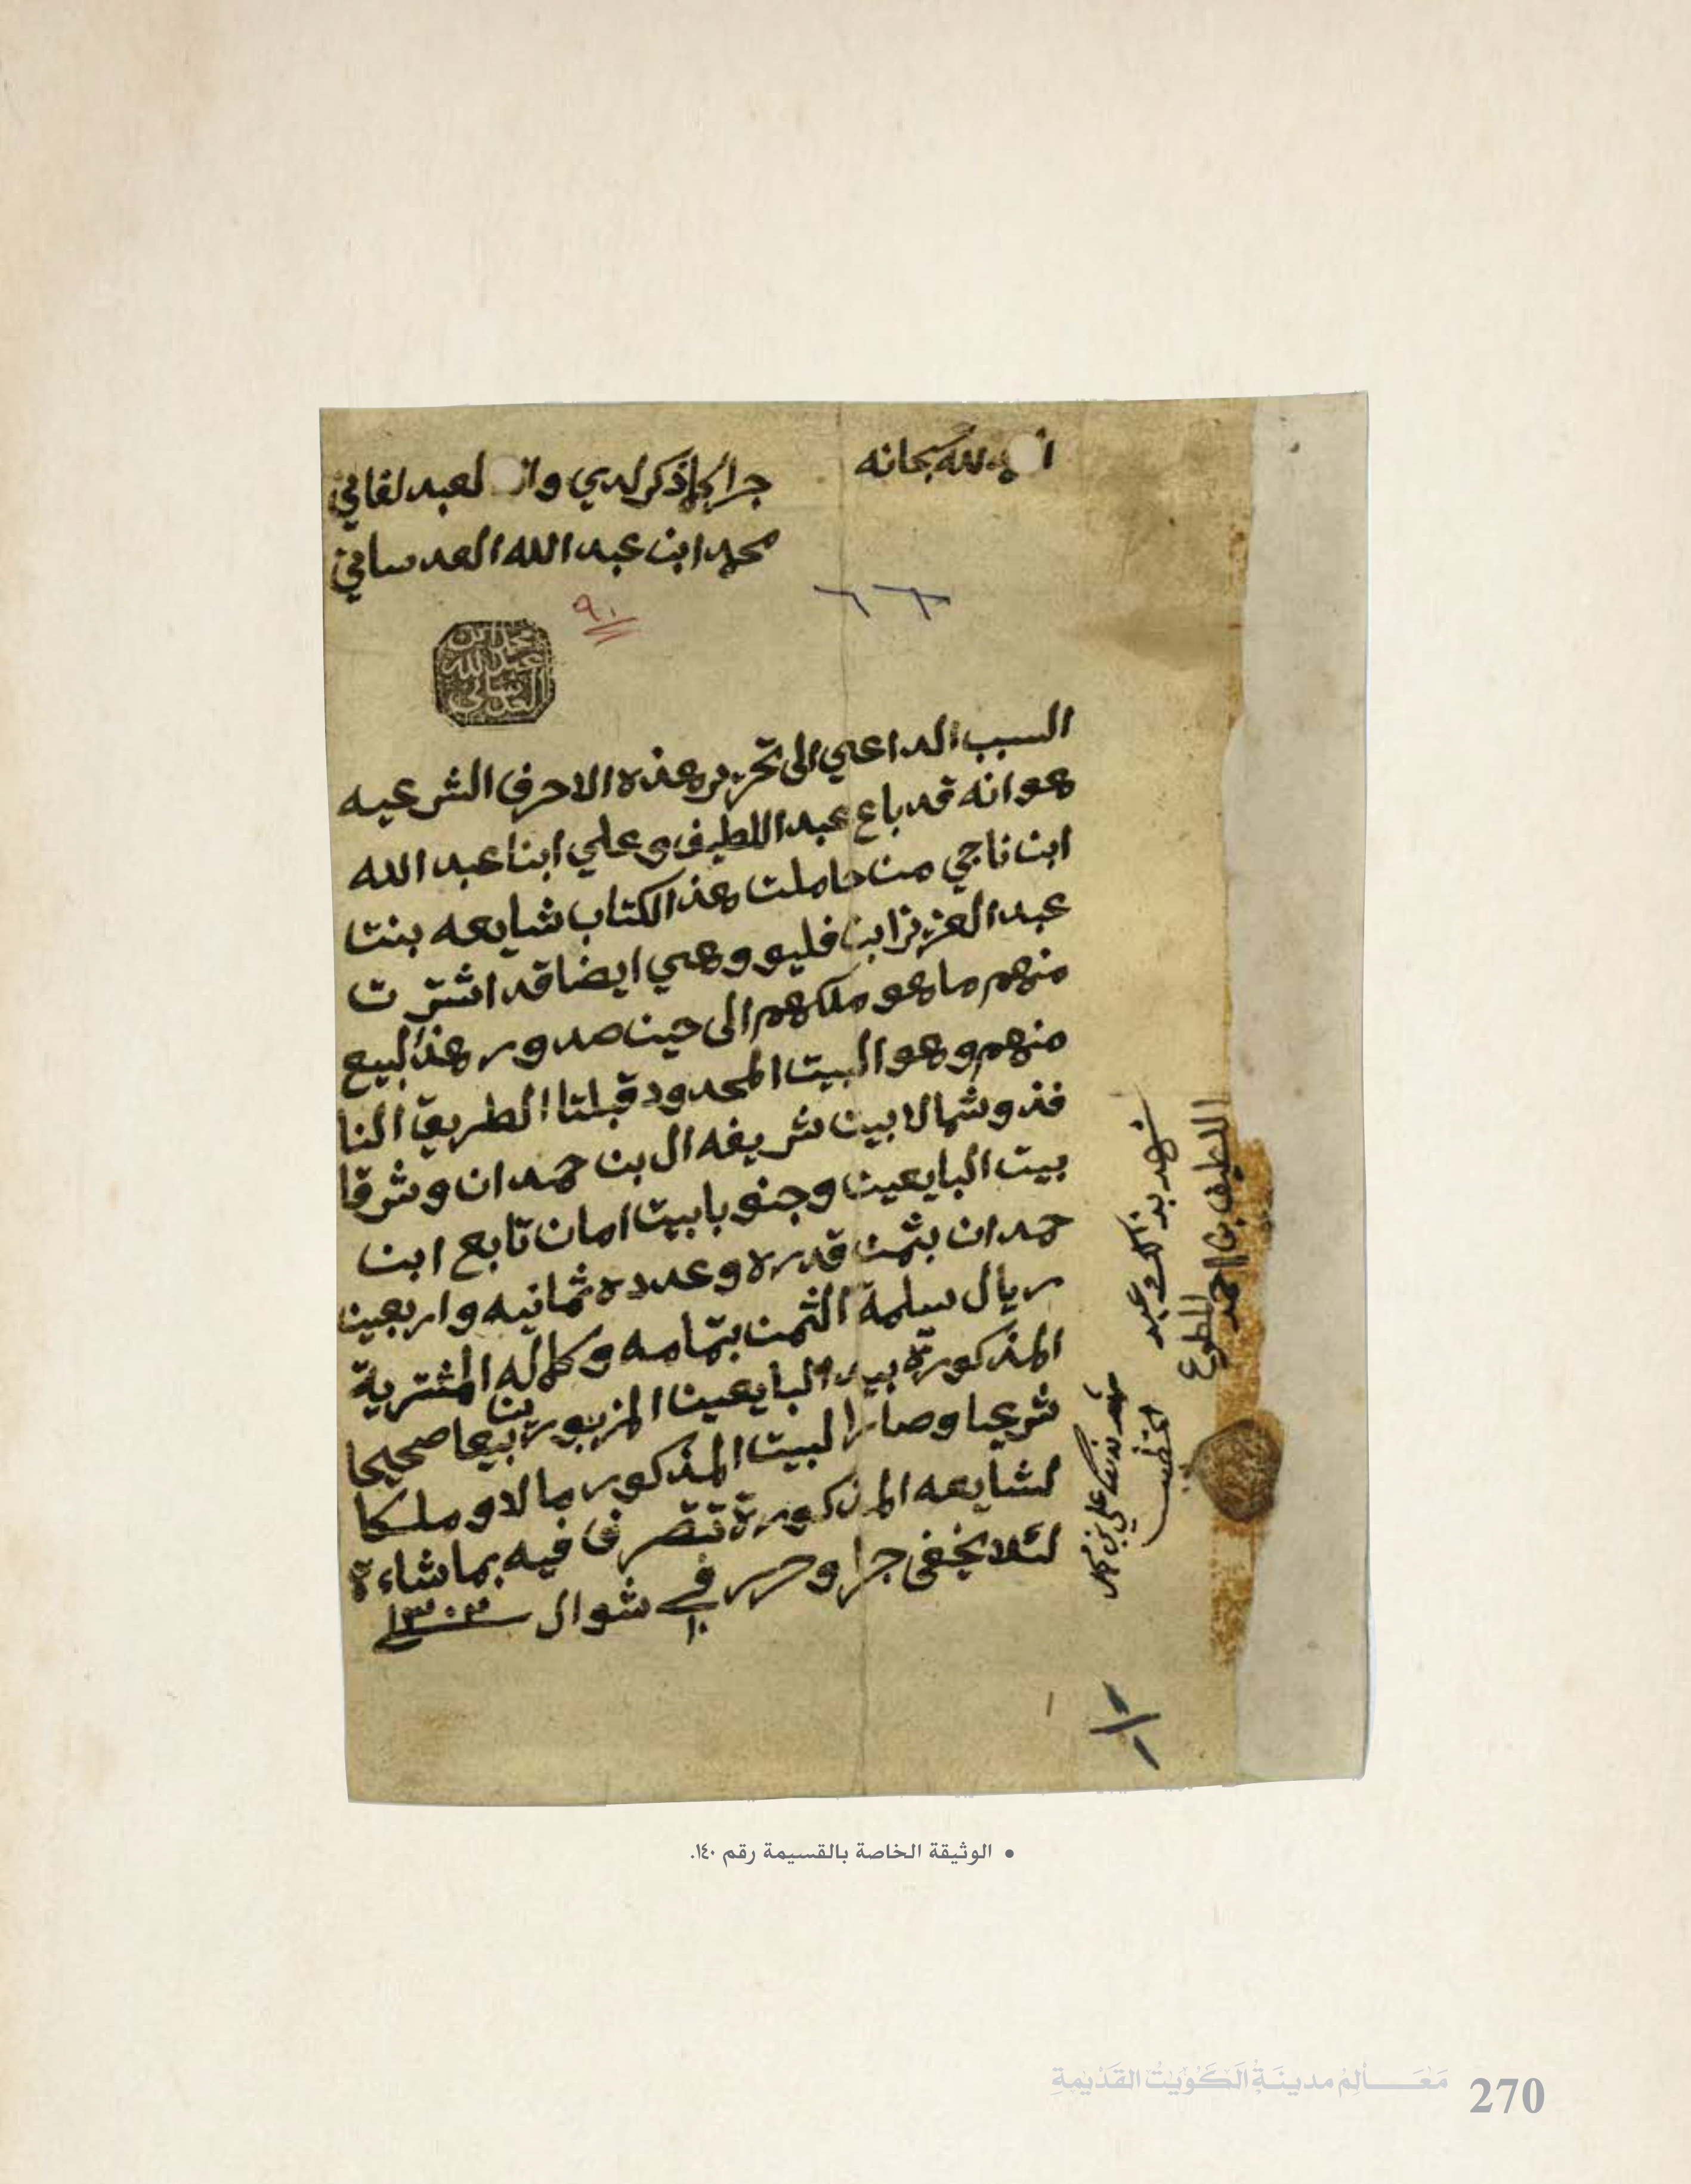 الحمد لله سبحانه
جرا كما ذكر لدي وانا العبد الفاني
محمد ابن عبد الله العدساني
٩٠
محمد ابن
عبد الله
العدساني
السبب الداعي الى تحرير هذه الاحرف الشرعيه
هو انه قد باع عبد اللطيف وعلي ابنا عبد الله
ابن ناجي من حاملت هذ الكتاب شايعه بنت
عبد العزيز ابن فليو وهي ايضا قد اشترت
منهم ما هو ملكهم الى حين صدور هذ البيع
منهم وهو البيت المحدود قبلتا الطريق النا
فذ وشمالا بيت شريفه ال بن حمدان وشرقا
بيت البايعين وجنوبا بيت امان تابع ابن
حمدان بثمن قدره وعدده ثمانيه واربعين
ريال سلمة الثمن بتمامه وكماله المشترية
المذكورة بيد البايعين المزبورين بيعا صحيحا
شرعيا وصار البيت المذكور مالا وملكا
لشايعه المذكورة تتصرف فيه بما شاءة
لئلا يخفى جرا وحرر في ١٠ شوال سنة ١٣٠٣
شهد بذلك عبد
اللطيف بن احمد
المطوع
شهد بذلك علي بن
• الوثيقة الخاصة بالقسيمة رقم ١٤٠.
مَعَـالِمُ مدينَـةِ الكُوَيتِ القَدِيمةِ 270